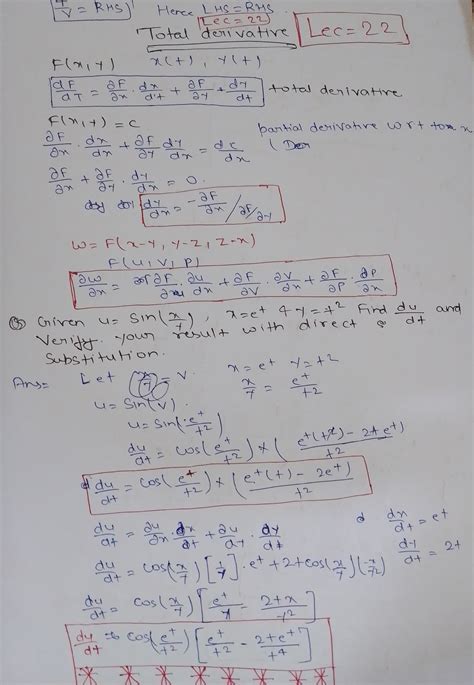 1/V = RHS
Hence LHS = RHS.
Lec = 22
Total derivative
Lec = 22
F(x,y) x(t), y(t)
dF/dT = ∂F/∂x · dx/dt + ∂F/∂y + dy/dt total derivative
F(x,t) = C
partial derivative w r t to x
∂F/∂x · dx/dx + ∂F/∂y dy/dx = dc/dx
(Der
∂F/∂x + ∂F/∂y · dy/dx = 0.
dy/dx = -∂F/∂x / ∂F/∂y
W = F(x-y, y-z, z-x)
F(u, v, p)
∂w/∂x = ∂F/∂u · ∂u/∂x + ∂F/∂v · ∂v/∂x + ∂F/∂p · ∂p/∂x
Given u = sin(x/y), x = e^t & y = t^2 Find du/dt and
Verify your result with direct
Substitution.
Ans = Let (x/y) = v. x = e^t y = t^2
u = sin(v). x/y = e^t/t^2
u = sin(e^t/t^2)
du/dt = cos(e^t/t^2) × (e^t(t^2) - 2te^t)/t^2
du/dt = cos(e^t/t^2) × (e^t(t) - 2e^t)/t^2
du/dt = ∂u/∂x · dx/dt + ∂u/∂y · dy/dt
dx/dt = e^t
du/dt = cos(x/y)[1/y] · e^t + 2t cos(x/y)(-x/y^2)
dy/dt = 2t
du/dt = cos(x/y)[e^t/y - 2tx/y^2]
du/dt = cos(e^t/t^2)[e^t/t^2 - 2te^t/t^4]